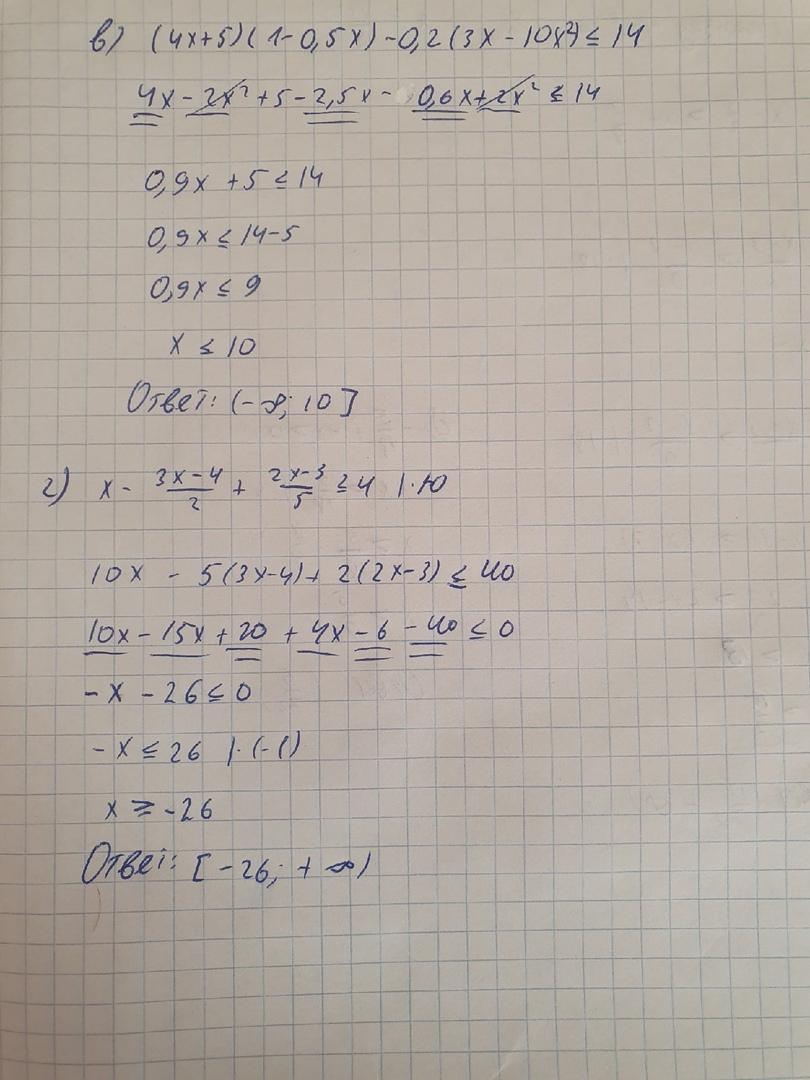 в) (4x+5)(1-0,5x)-0,2(3x-10x²)≤14
4x-2x²+5-2,5x-0,6x+2x²≤14
0,9x+5≤14
0,9x≤14-5
0,9x≤9
x≤10
Ответ: (-∞; 10]
г) x - 3x-4/2 + 2x-3/5 ≥4 |·10
10x - 5(3x-4)+2(2x-3)≤40
10x-15x+20+4x-6-40≤0
-x-26≤0
-x≤26 |·(-1)
x≥-26
Ответ: [-26; +∞)